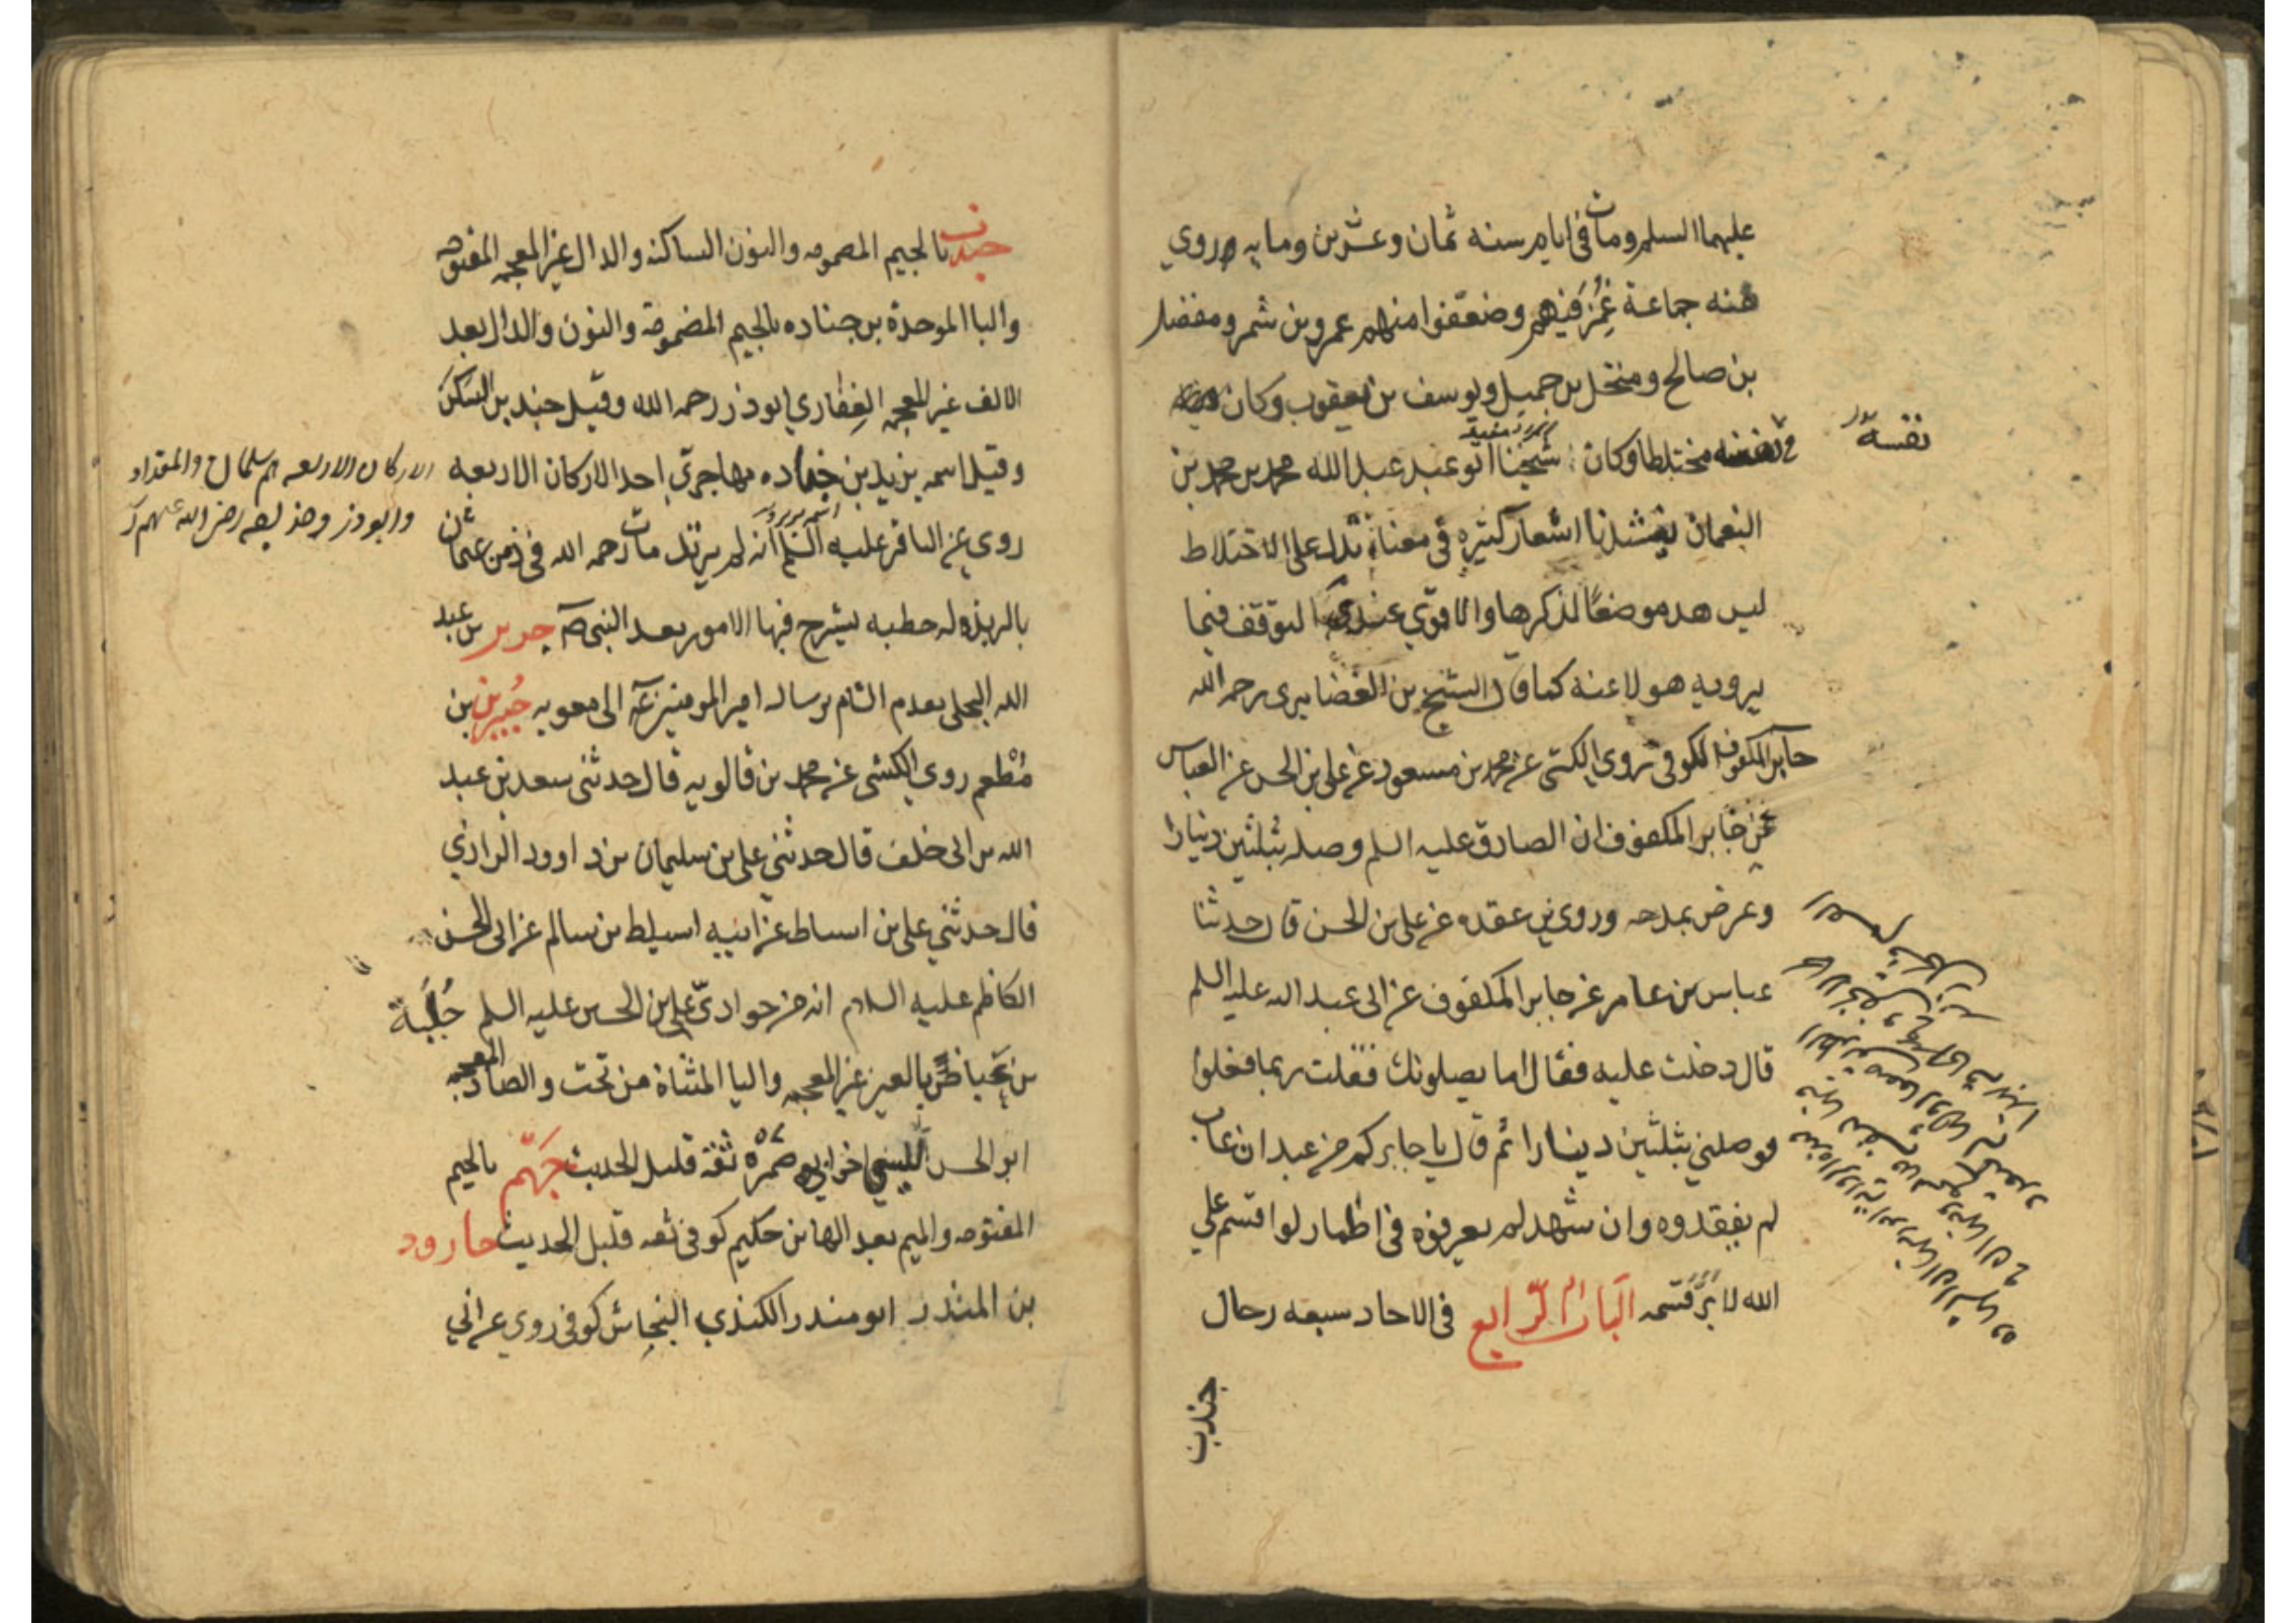 عليهما السلم ومات في ايامه سنه ثمان وعشرين ومايه وروي
عنه جماعة غُمِزَ فيهم وضعّفوا منهم عمرو بن شمر ومفضل
بن صالح ومنخل بن جميل ويوسف بن يعقوب وكان
في نفسه مختلطا وكان شيخنا ابو عبد عبد الله محمد بن محمد بن
نفسه
النعمان ينشدنا اشعار كثيره في معناه تدل على الاختلاط
ليس هد موضعًا لذكرها والاقوي عندي التوقف فيما
يرويه هولا عنه كما قال الشيخ بن الغضايري رحمه الله
جابر المكفوف الكوفي روي الكشي عن محمد بن مسعود عن علي بن الحسن عن العباس
عن جابر المكفوف ان الصادق عليه السلم وصله بثلثين دنيارا
وعرض بمدحه وروي بن عقده عن علي بن الحسن قال حدثنا
عباس بن عامر عن جابر المكفوف عن ابي عبد الله عليه السلم
قال دخلت عليه فقال اما يصلونك فقلت ربما فعلوا
فوصلني بثلثين دينارا ثم قال يا جابر كم من عبد ان غاب
لم يفقدوه وان شهد لم يعرفوه في اطمار لو اقسم علي
الله لا برّ قسمه الباب الرّابع في الاحاد سبعه رجال
جندب
جندب بالجيم المضمومه والنون الساكنه والدال غير المعجمه المفتوحه
والبا الموحدة بن جناده بالجيم المضمومة والنون والدال بعد
الالف غير المعجمه الغِفاري ابوذر رحمه الله وقيل جندب بن السكن
وقيل اسمه بزيد بن جناده مهاجريّ احد الاركان الاربعه
الاركان الاربعه هم سلمان والمقداد
وابوذر وحذيفه رضي الله عنهم
روي عن الباقر عليه السلم انه لم يرتد مات رحمه الله في زمن عثمان
بالربذه له خطبه يشرح فيها الامور بعد النبي صه جرير بن عبد
الله البجلي بعدم الشام برساله امير المومنين عه الي معويه جُبير بن
مُطْعم روي الكشي عن محمد بن قالويه قال حدثني سعد بن عبد
الله بن ابي خلف قال حدثني علي بن سليمان بن داوود الرازي
قال حدثني علي بن اسباط عن ابيه اسباط بن سالم عن ابي الحسن
الكاظم عليه السلام انه من حواريّ علي بن الحسين عليه السلم جُلْبة
بن عَياض بالعين غير المعجمه واليا المثناة من تحت والضاد المعجمه
ابو الحسن الليثي اخو ابي ضمره ثقة قليل الحديث جَهَم بالجيم
المفتوحه والميم بعد الها بن حكيم كوفي ثقه قليل الحديث جارود
بن المنذر ابو منذر الكندي النجاشي كوفي روي عن ابي